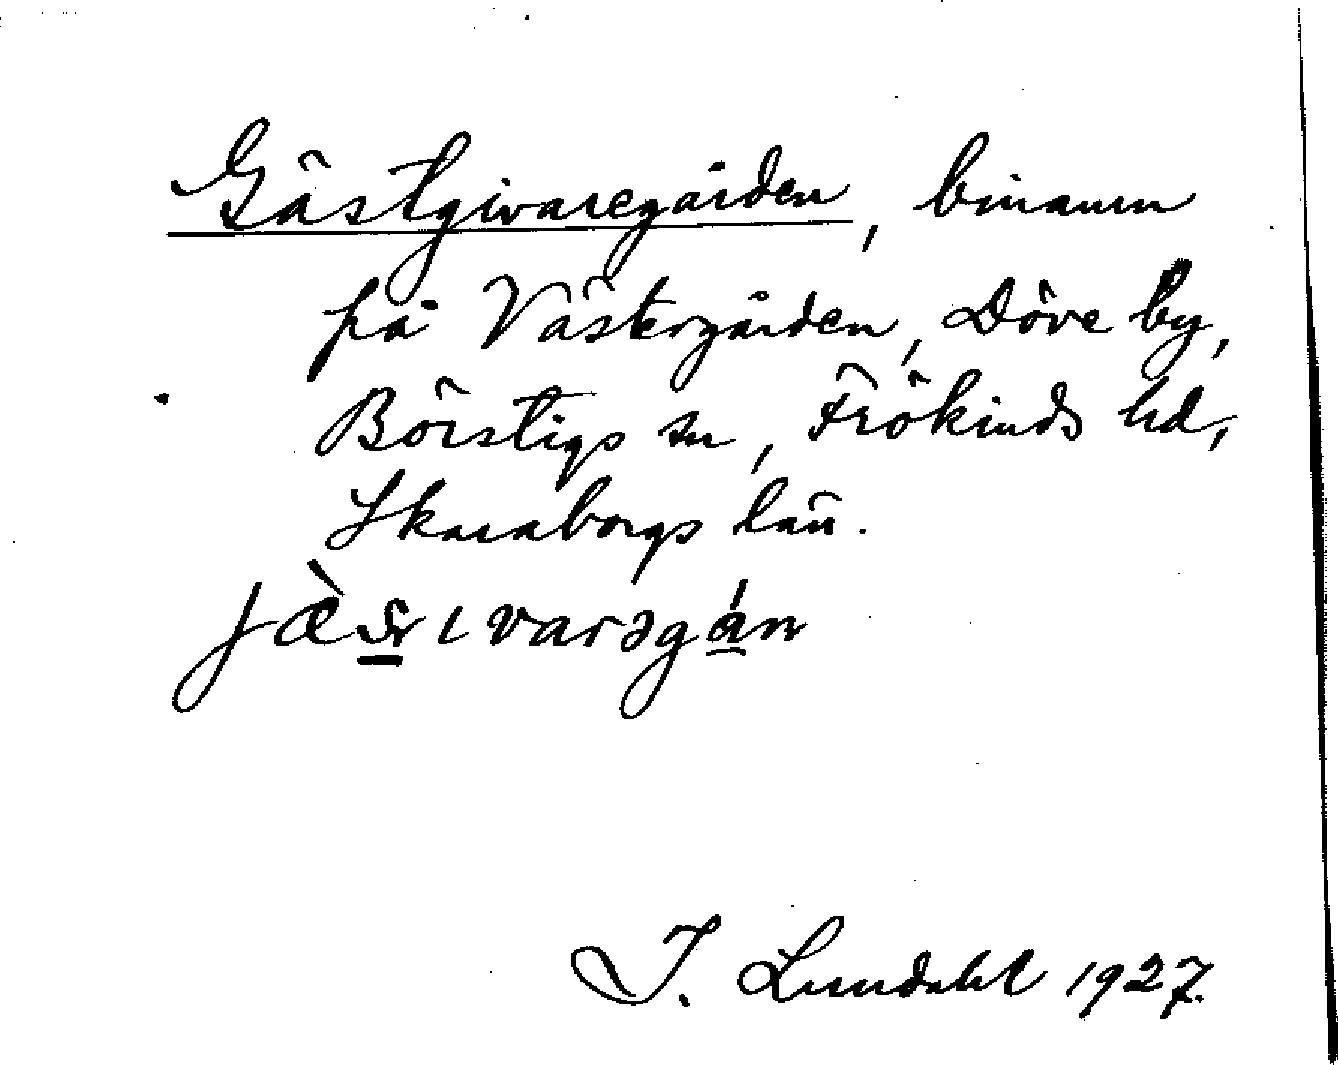 Gästgivaregården, binamn
på Västergården, Döve by,
Börstigs sn, Frökinds hd,
Skaraborgs län.
I. Lundahl 1927.